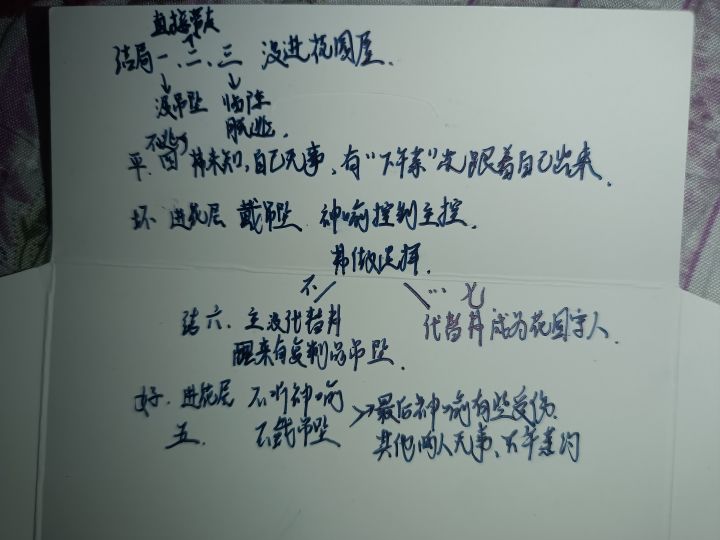 直接带友
结局一、二、三 没进花园屋.
没吊坠 临阵
脱逃.
不逃
平. 四 韩未知,自己无事,有“下午茶”先跟着自己出来.
坏 进花层 戴吊坠 神喻控制主控.
韩做选择.
不 … 七
结六. 主没代替韩 代替韩成为花园守人.
醒来有复制品吊坠.
好. 进花层 不听神喻 →最后神喻有些受伤.
五. 不戴吊坠 其他两人无事、下午茶约